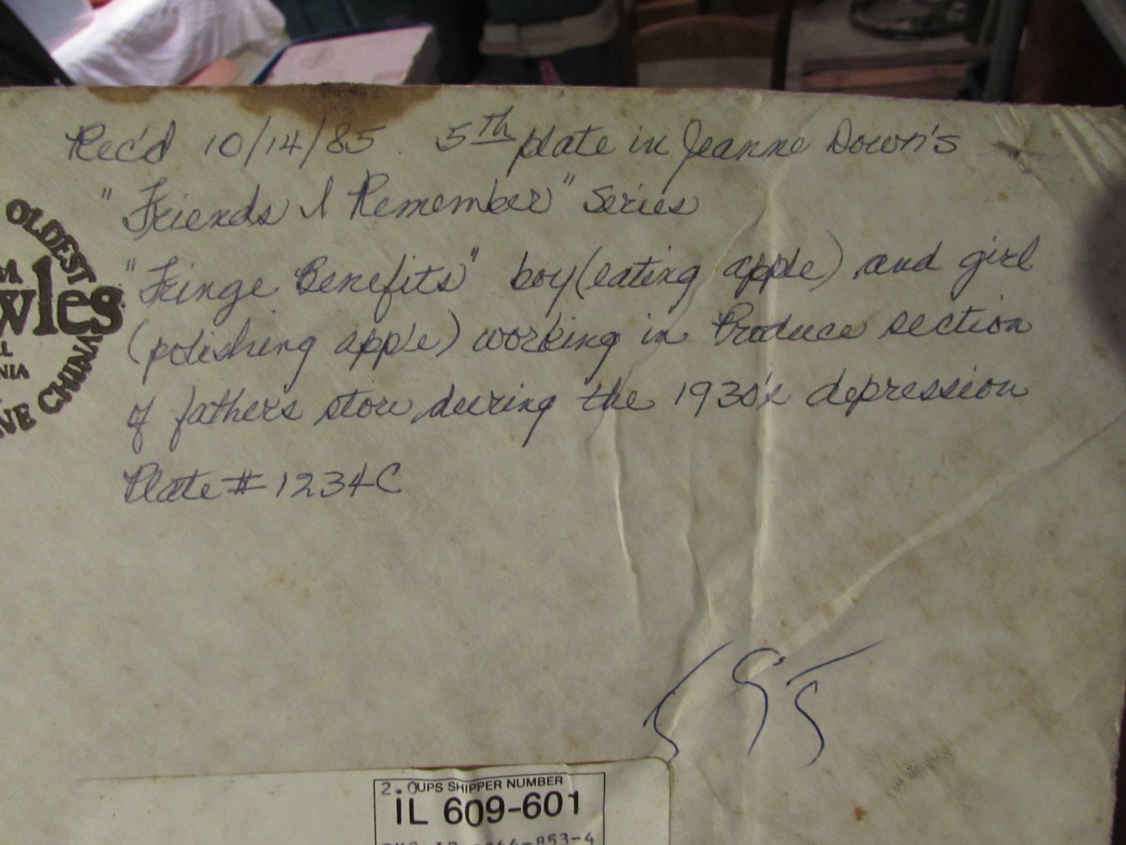 Rec'd 10/14/85. 5th plate in Jeanne Down's
"Friends I Remember" Series
"Fringe Benefits" boy (eating apple) and girl
(polishing apple) working in Produce section
of fathers store during the 1930's depression
Plate # 1234C
OLDEST
wles
NIA
NE CHINA
595
2. UPS SHIPPER NUMBER
IL 609-601